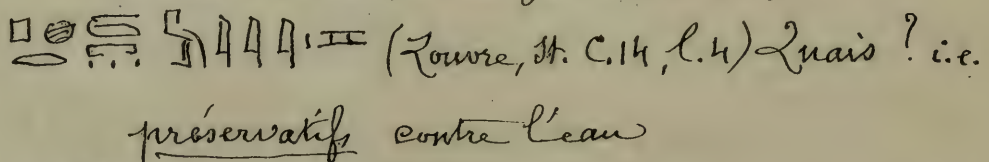 (Louvre, St. C.14, l.4) Quais ? i.e.
préservatifs contre l'eau